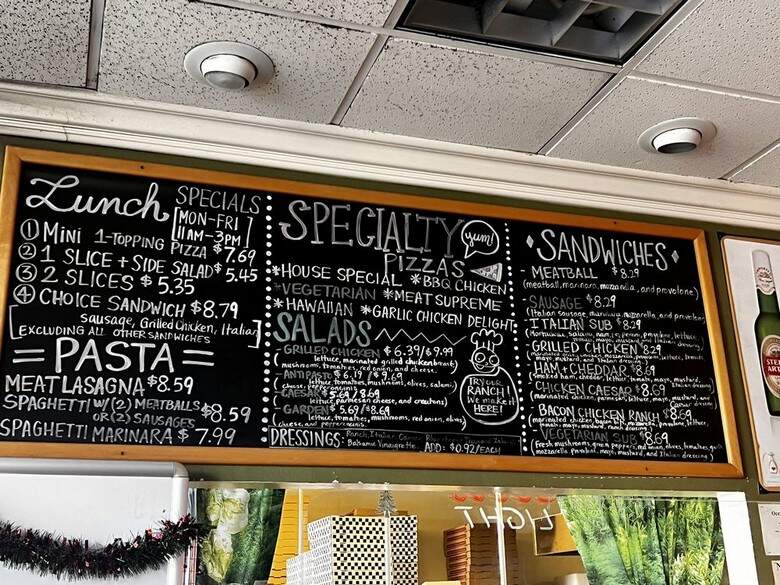 Lunch SPECIALS
[MON-FRI
11AM-3PM]
① Mini 1-TOPPING PIZZA $7.69
② 1 SLICE + SIDE SALAD $5.45
③ 2 SLICES $5.35
④ CHOICE SANDWICH $8.79
[Sausage, Grilled Chicken, Italian]
EXCLUDING ALL OTHER SANDWICHES
=PASTA=
MEAT LASAGNA $8.59
SPAGHETTI W/(2) MEATBALLS
OR (2) SAUSAGES $8.59
SPAGHETTI MARINARA $7.99
SPECIALTY
PIZZAS
yum!
*HOUSE SPECIAL *BBQ CHICKEN
*VEGETARIAN *MEAT SUPREME
*HAWAIIAN *GARLIC CHICKEN DELIGHT
SALADS
GRILLED CHICKEN $6.39/$9.99
(lettuce, marinated grilled chicken breast,
mushrooms, tomatoes, red onion, and cheese)
ANTIPASTO $6.19/$9.69
lettuce, tomatoes, mushrooms, olives, salami,
CAESAR $5.69/8.69
lettuce, parmesan cheese, and croutons)
GARDEN $5.69/$8.69
(lettuce, tomatoes, mushrooms, red onion, olives,
cheese, and pepperoncinis)
TRY OUR
RANCH
We make it
HERE!
DRESSINGS: Ranch, Italian,
Balsamic Vinaigrette. ADD: $0.92/EACH
SANDWICHES
- MEATBALL $8.29
(meatball, marinara, mozzarella, and provolone)
- SAUSAGE $8.29
(Italian sausage, marinara, mozzarella, and provolone)
- ITALIAN SUB $8.29
- GRILLED CHICKEN $8.29
- HAM + CHEDDAR $8.69
- CHICKEN CAESAR $8.69
- BACON CHICKEN RANCH $8.69
- VEGETARIAN SUB $8.69
(Fresh mushrooms, green peppers, red onions, olives, tomatoes,
mozzarella, provolone, mayo, mustard, and Italian dressing)
LIGHT